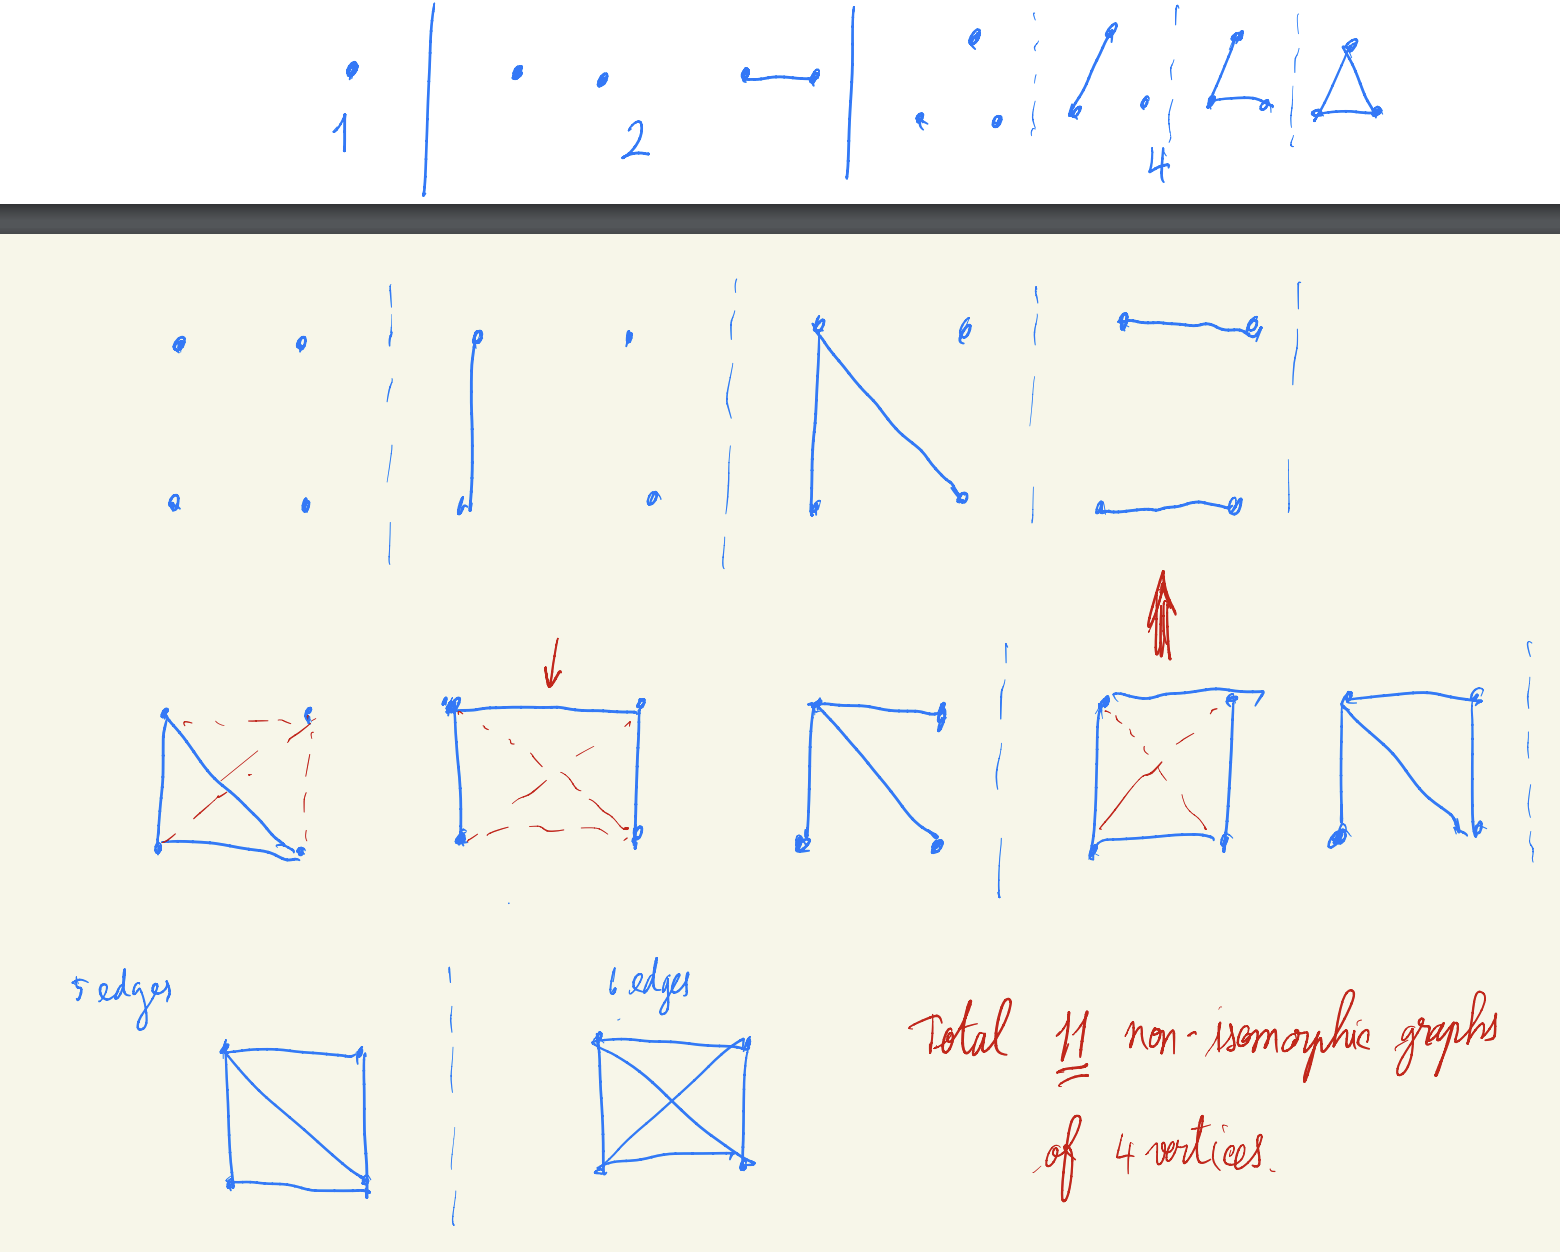 1
2
4
5 edges
6 edges
Total 11 non-isomorphic graphs
of 4 vertices.